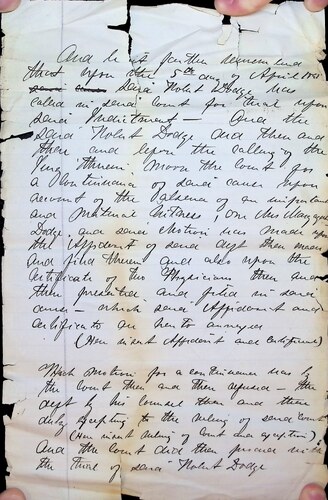 And be it further remembered
that upon the 5th day of April 188
said Robt Dodge was
called in said Court for trial upon
said Indictment - And the
said Robt Dodge and then and
there and upon the calling of the
moon the Court for
a Continuance of said cause upon
account of the absence of an important
and Material Witness, One Mrs Mary
Dodge, and said Motion was made upon
the Affidavit of said deft then
and filed therein and also upon the
Certificate of two Physicians then and
there presented and filed in said
cause - which said Affidavit and
Certificate are hereto annexed
(Here insert Affidavit and Certificate)
Which Motion for a continuance was by
the Court then and there refused - the
deft by his counsel then and there
duly excepting to the ruling of said Court
(Here insert ruling of Court and exception)
And the Court did then proceed with
the trial of said Robt Dodge